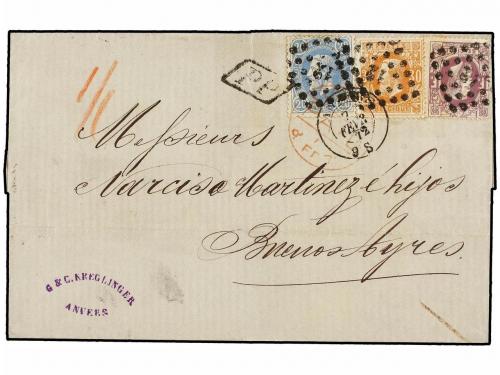 1/6
PD
Messieurs
Narciso Martinez é hijos
Buenos Ayres.
G & C. KREGLINGER
ANVERS
9 S